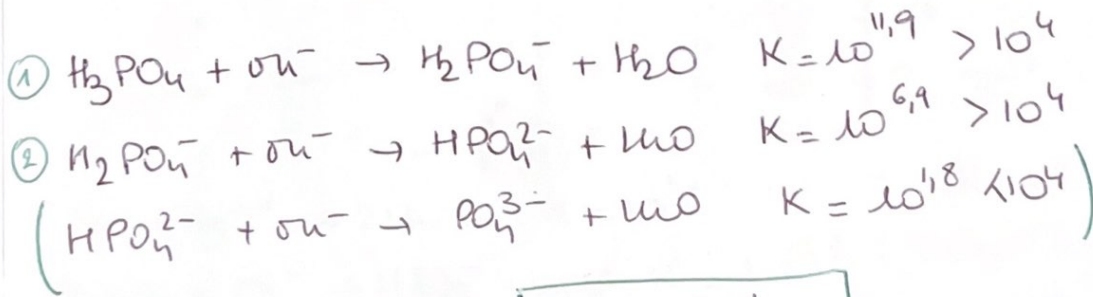 ① H₃PO₄ + OH⁻ → H₂PO₄⁻ + H₂O K = 10^11,9 > 10^4
② H₂PO₄⁻ + OH⁻ → HPO₄²⁻ + H₂O K = 10^6,9 > 10^4
( HPO₄²⁻ + OH⁻ → PO₄³⁻ + H₂O K = 10^1,8 < 10^4 )